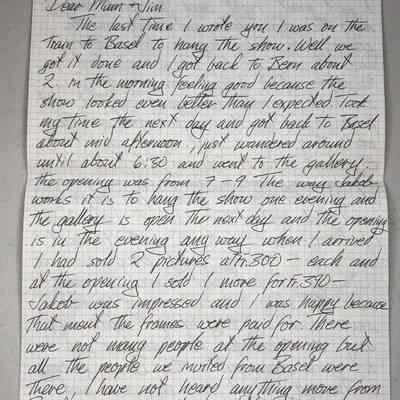 Dear Mum + Jim
The last time I wrote you I was on the
Train to Basel to hang the show. Well we
got it done and I got back to Bern about
2 in the morning feeling good because the
show looked even better than I expected. Took
my time the next day and got back to Basel
about mid afternoon, just wandered around
until about 6:30 and went to the gallery,
the opening was from 7-9 The way Jakob
works it is to hang the show one evening and
the gallery is open the next day and the opening
is in the evening any way when I arrived
I had sold 2 pictures at Fr.300 - each and
at the opening I sold 1 more for Fr.390 -
Jakob was impressed and I was happy because
That meant the frames were paid for. There
were not many people at the opening but
all the people we invited from Basel were
there, I have not heard anything more from